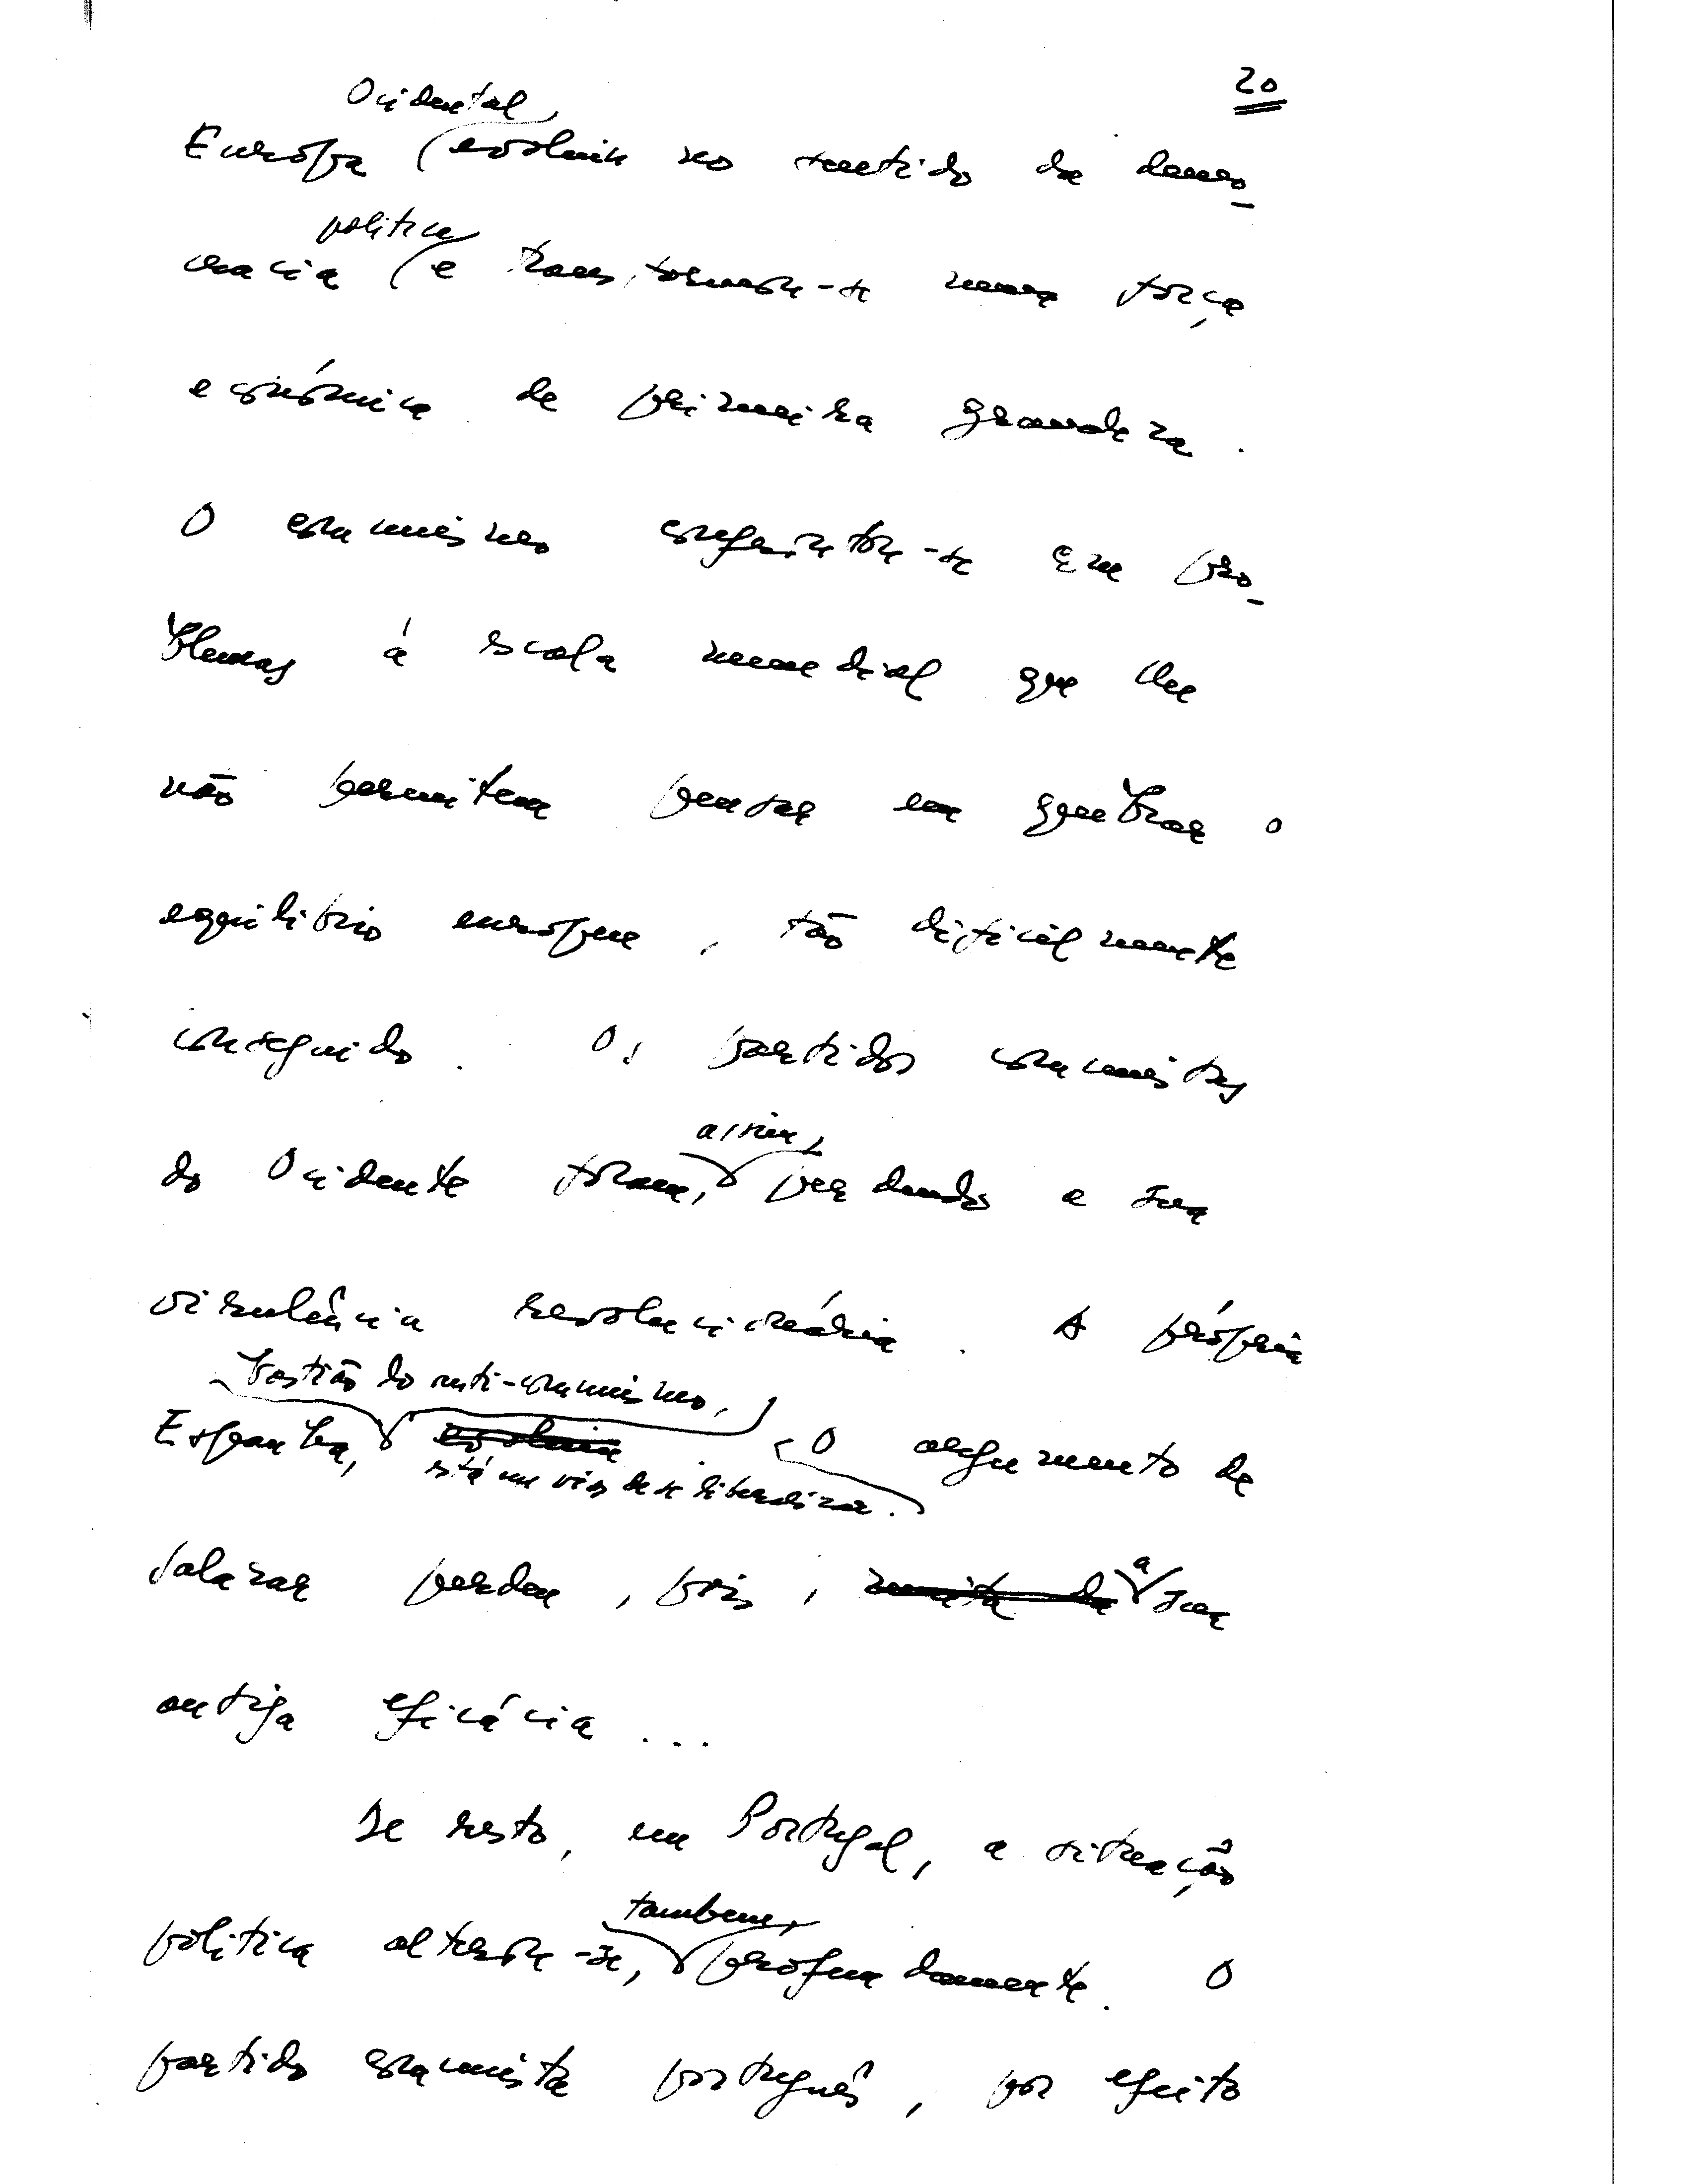 20
Ocidental
Europa evoluiu no sentido da demo-
política
cracia e transformou-se numa força
económica de primeira grandeza.
O comunismo confronta-se com pro-
blemas à escala mundial que lhe
não permitem pensar em quebrar o
equilibrio europeu, tão dificilmente
conseguido. Os partidos comunistas
assim,
do Ocidente foram, perdendo a sua
virulência revolucionária. A própria
bastião do anti-comunismo,
Espanha, evoluiu O argumento de
está em vias de se liberalizar.
Salazar perdeu, pois, muita da a sua
antiga eficácia...
De resto, em Portugal, a situação
tambem,
politica alterou-se, profundamente. O
partido comunista português, por efeito